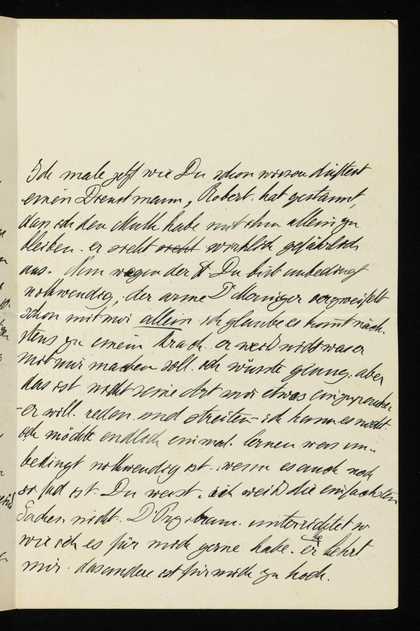 Ich male jetzt wie Du schon wissen dürftest
einen Dienstmann, Robert. hat gestaunt,
dass ich den Muth habe mit ihm allein zu
bleiben. er sieht wirklich gefährlich
aus. Nun wegen der Du bist unbedingt
nothwendig, der arme D verzweifelt
schon mit mir allein ich glaube es kommt näch-
stens zu einem Krach. er weiss nicht was er
mit mir machen soll. ich wurde genug. aber
das ist nicht seine Art mir etwas
er will. reden und streiten - ich kann es nicht
ich möchte endlich einmal. lernen was un-
bedingt nothwendig ist. wenn es auch noch
so fad ist. Du weist. ich weiß die einfachsten
Sachen nicht. D unterrichtet so
wie ich es für mich gerne habe. er lehrt
mir. das andere ist für mich zu hoch.